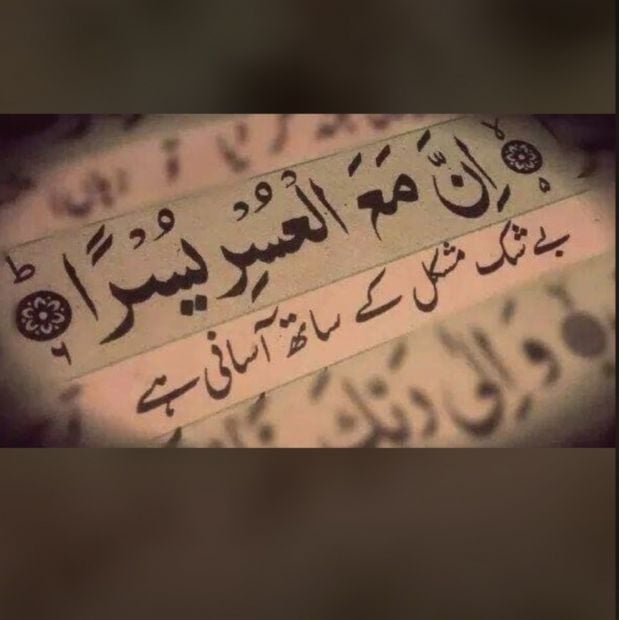 اِنَّ مَعَ الْعُسْرِ يُسْرًا ۶ ط
بے شک مشکل کے ساتھ آسانی ہے
وَ اِلٰی رَبِّكَ